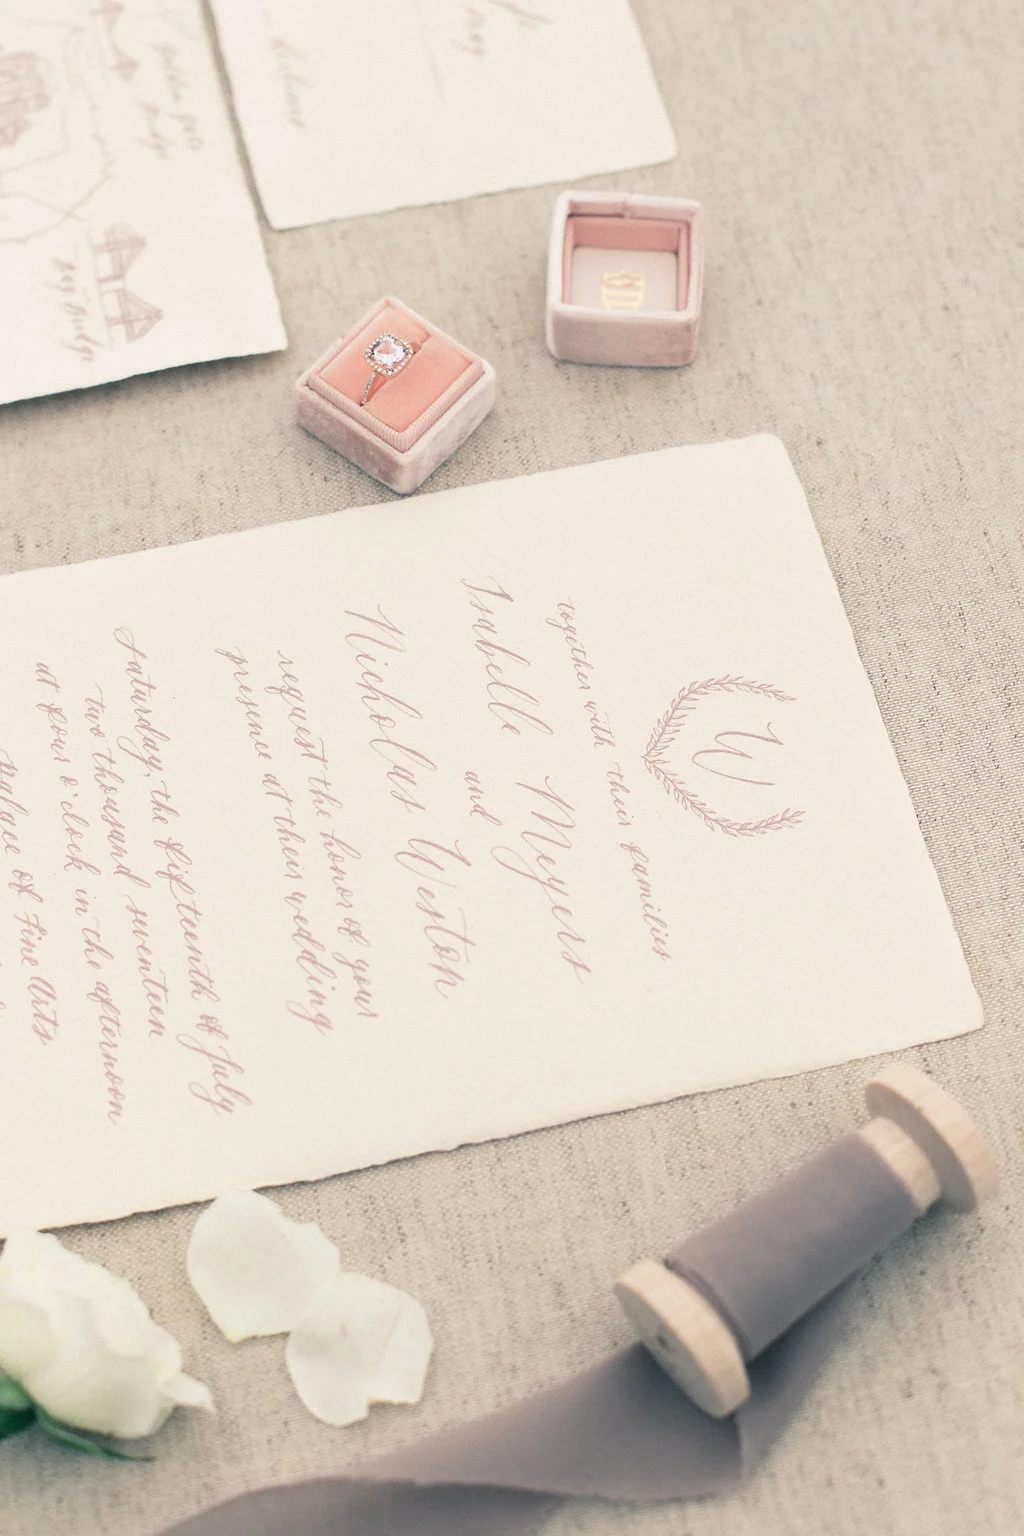 W
together with their families
Isabelle Meyers
and
Nicholas Weston
request the honor of your
presence at their wedding
saturday, the fifteenth of July
two thousand seventeen
at four o'clock in the afternoon
palace of Fine Arts
golden gate
bridge
bay bridge